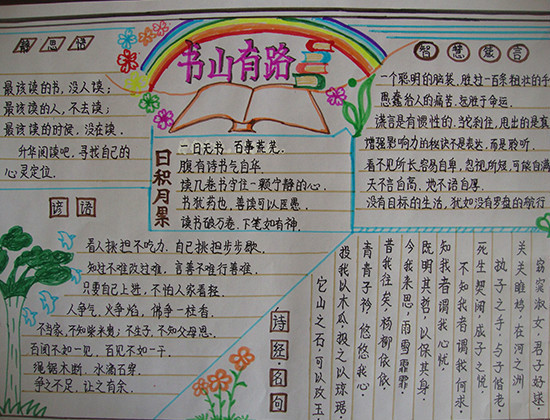 静思语
最该读的书,没人读;
最该读的人,不去读;
最该读的时候,没在读.
升华阅读吧,寻找自己的
心灵定位.
书山有路
智慧箴言
一个聪明的脑袋,胜过一百条粗壮的手
愚蠢给人的痛苦,总胜于命运.
谎言是有惯性的,当它刹住,甩出的是真
增强影响力的秘诀不是表达,而是聆听
看不见所长容易自卑,忽视所短,可能自满
天不言自高,地不语自厚.
没有目标的生活,犹如没有罗盘的航行
日积月累
一日无书 百事荒芜.
腹有诗书气自华.
读几卷书守住一颗宁静的心.
书犹药也,善读可以医愚.
读书破万卷,下笔如有神.
谚语
看人挑担不吃力,自己挑担步步歇.
知过不难改过难,言善不难行善难.
只要自己上进,不怕人家看轻.
人争气,火争焰,佛争一柱香.
不当家,不知柴米贵;不生子,不知父母恩.
百闻不如一见,百见不如一干.
绳锯木断,水滴石穿.
争之不足,让之有余.
诗经名句
窈窕淑女,君子好逑
关关雎鸠,在河之洲
执子之手,与子偕老.
死生契阔,成子之悦
不知我者谓我何求
知我者谓我心忧.
既明其哲,以保其身.
今我来思,雨雪霏霏
昔我往矣,杨柳依依
青青子衿,悠悠我心
投我以木瓜,报之以琼琚.
它山之石,可以攻玉